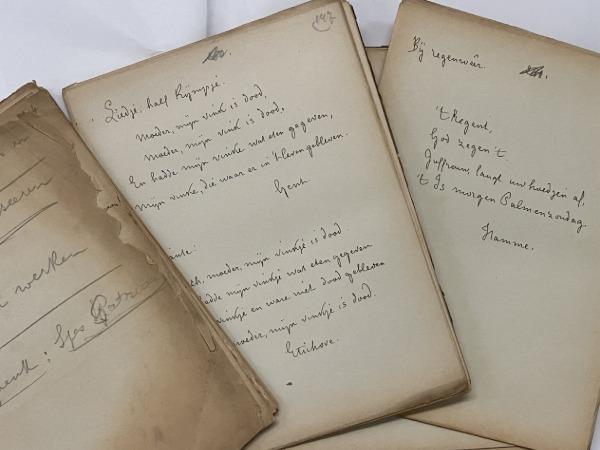 197
Liedje, half Rijmpje.
Moeder, mijn vink is dood,
Moeder, mijn vink is dood,
En hadde mijn vinke wat eten gegeven,
Mijn vinke, die waar er in 't leven gebleven.
Gent.
ante:
ch, moeder, mijn vinkje is dood
hadde mijn vinkje wat eten gegeven
vinkje en ware niet dood gebleven
moeder, mijn vinkje is dood.
Etichove.
Bij regenweêr.
't Regent,
God zegen 't.
Juffrouw, langt uw hoedjen af,
't Is morgen Palmenzondag.
Hamme.
seeren
werken